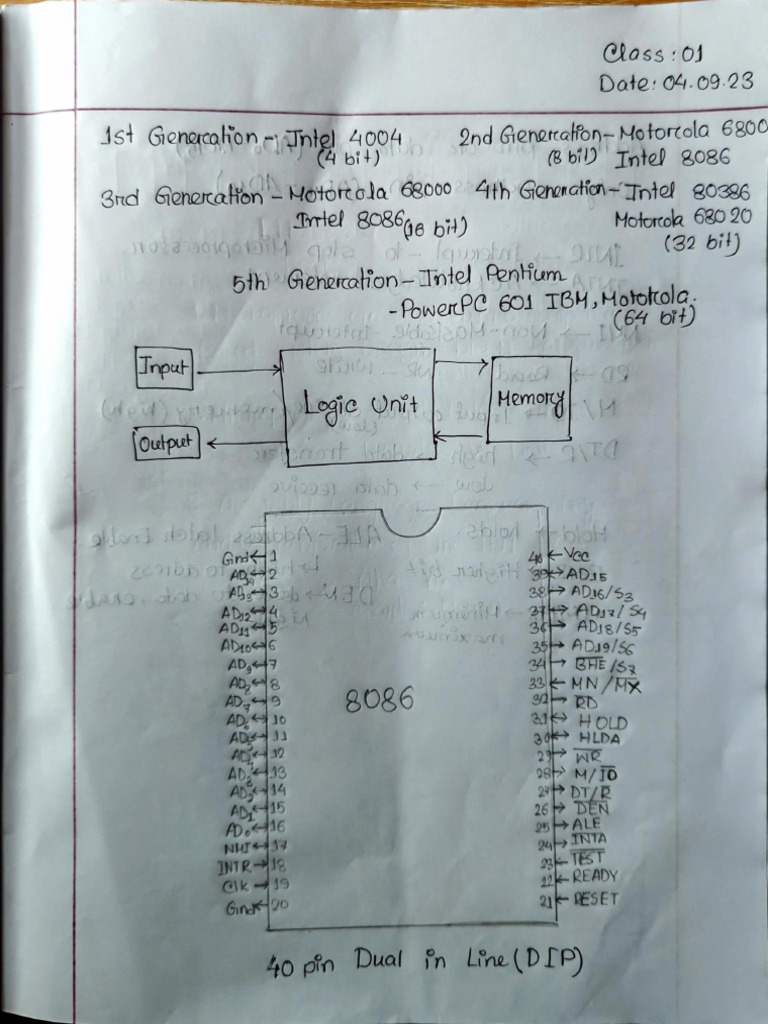 Class: 01
Date: 04.09.23
1st Generation - Intel 4004
(4 bit)
2nd Generation - Motorola 6800
(8 bit) Intel 8086
3rd Generation - Motorola 68000
Intel 8086 (16 bit)
4th Generation - Intel 80386
Motorola 68020
(32 bit)
5th Generation - Intel Pentium
- PowerPC 601 IBM, Motorola.
(64 bit)
Input
Logic Unit
Memory
Output
8086
Gnd 1
AD14 2
AD13 3
AD12 4
AD11 5
AD10 6
AD9 7
AD8 8
AD7 9
AD6 10
AD5 11
AD4 12
AD3 13
AD2 14
AD1 15
AD0 16
NMI 17
INTR 18
Clk 19
Gnd 20
40 Vcc
39 AD15
38 AD16/S3
37 AD17/S4
36 AD18/S5
35 AD19/S6
34 BHE/S7
33 MN/MX
32 RD
31 HOLD
30 HLDA
29 WR
28 M/IO
27 DT/R
26 DEN
25 ALE
24 INTA
23 TEST
22 READY
21 RESET
40 pin Dual in Line (DIP)